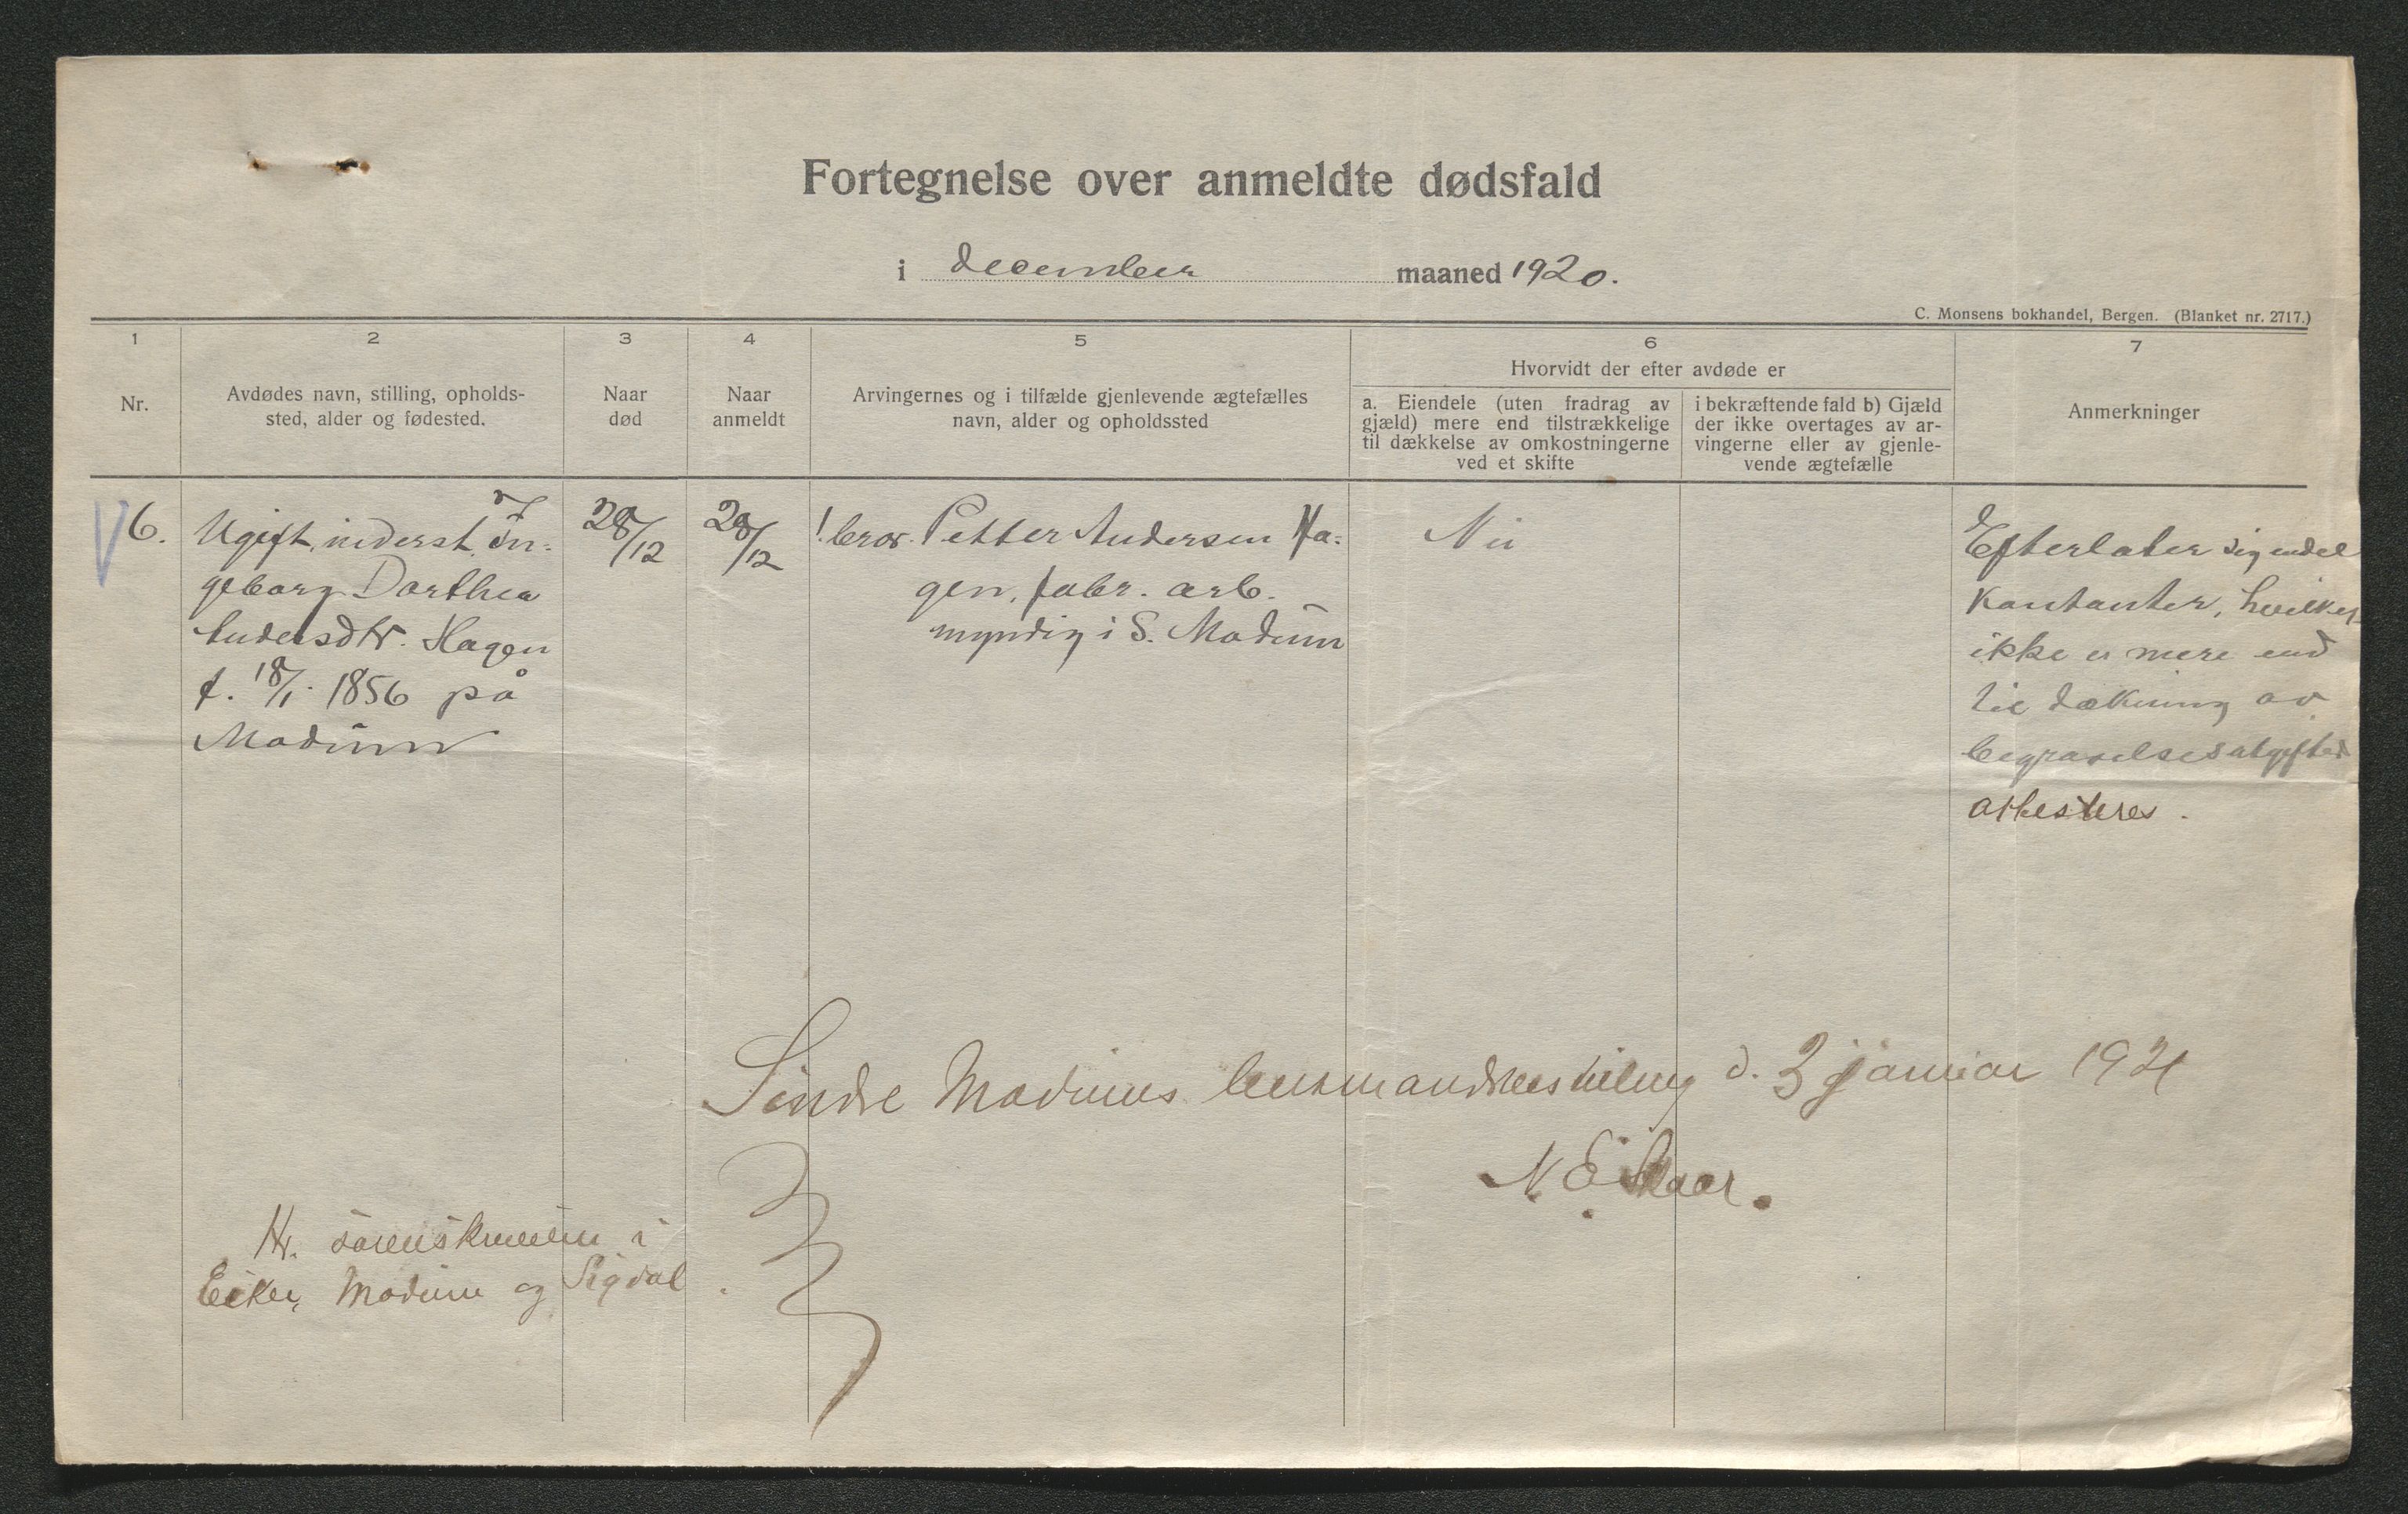 Fortegnelse over anmeldte dødsfald
i december maaned 1920.
C. Monsens bokhandel, Bergen. (Blanket nr. 2717.)
1
2
3
4
5
6
7
Nr.
Avdødes navn, stilling, opholds-
sted, alder og fødested.
Naar
død
Naar
anmeldt
Arvingernes og i tilfælde gjenlevende ægtefælles
navn, alder og opholdssted
Hvorvidt der efter avdøde er
a. Eiendele (uten fradrag av
gjæld) mere end tilstrækkelige
til dækkelse av omkostningerne
ved et skifte
i bekræftende fald b) Gjæld
der ikke overtages av ar-
vingerne eller av gjenle-
vende ægtefælle
Anmerkninger
6.
Ugift inderst In-
geborg Dorthea
Andersdtr. Hagen
f. 18/1 1856 på
Modum
28/12
28/12
! bror Petter Andersen Ha-
gen, fabr. arb.
myndig i S. Modum
Nei
Efterlater sig endel
kontanter, hvilket
ikke er mere end
til dækning av
begravelsesutgifter
attesteres.
Søndre Modums lensmandsbestilling d. 3 januar 1921
N. E. Skaar.
Hr. sorenskriveren i
Eiker, Modum og Sigdal.